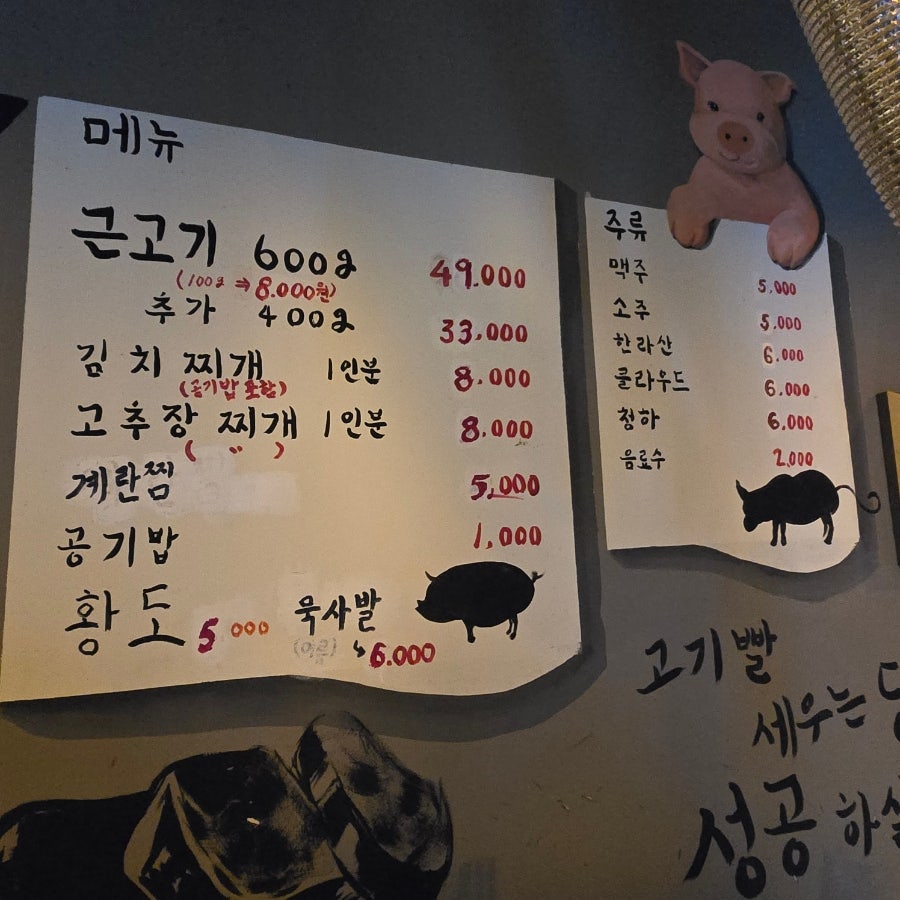 메뉴
근고기 600g 49.000
(100g ⇒ 8.000원)
추가 400g 33,000
김치찌개 1인분 8,000
(공기밥 포함)
고추장찌개 1인분 8,000
( " )
계란찜 5,000
공기밥 1,000
황도 5000 묵사발
(여름) ↳ 6.000
주류
맥주 5,000
소주 5,000
한라산 6.000
클라우드 6.000
청하 6,000
음료수 2,000
고기빨
세우는
성공